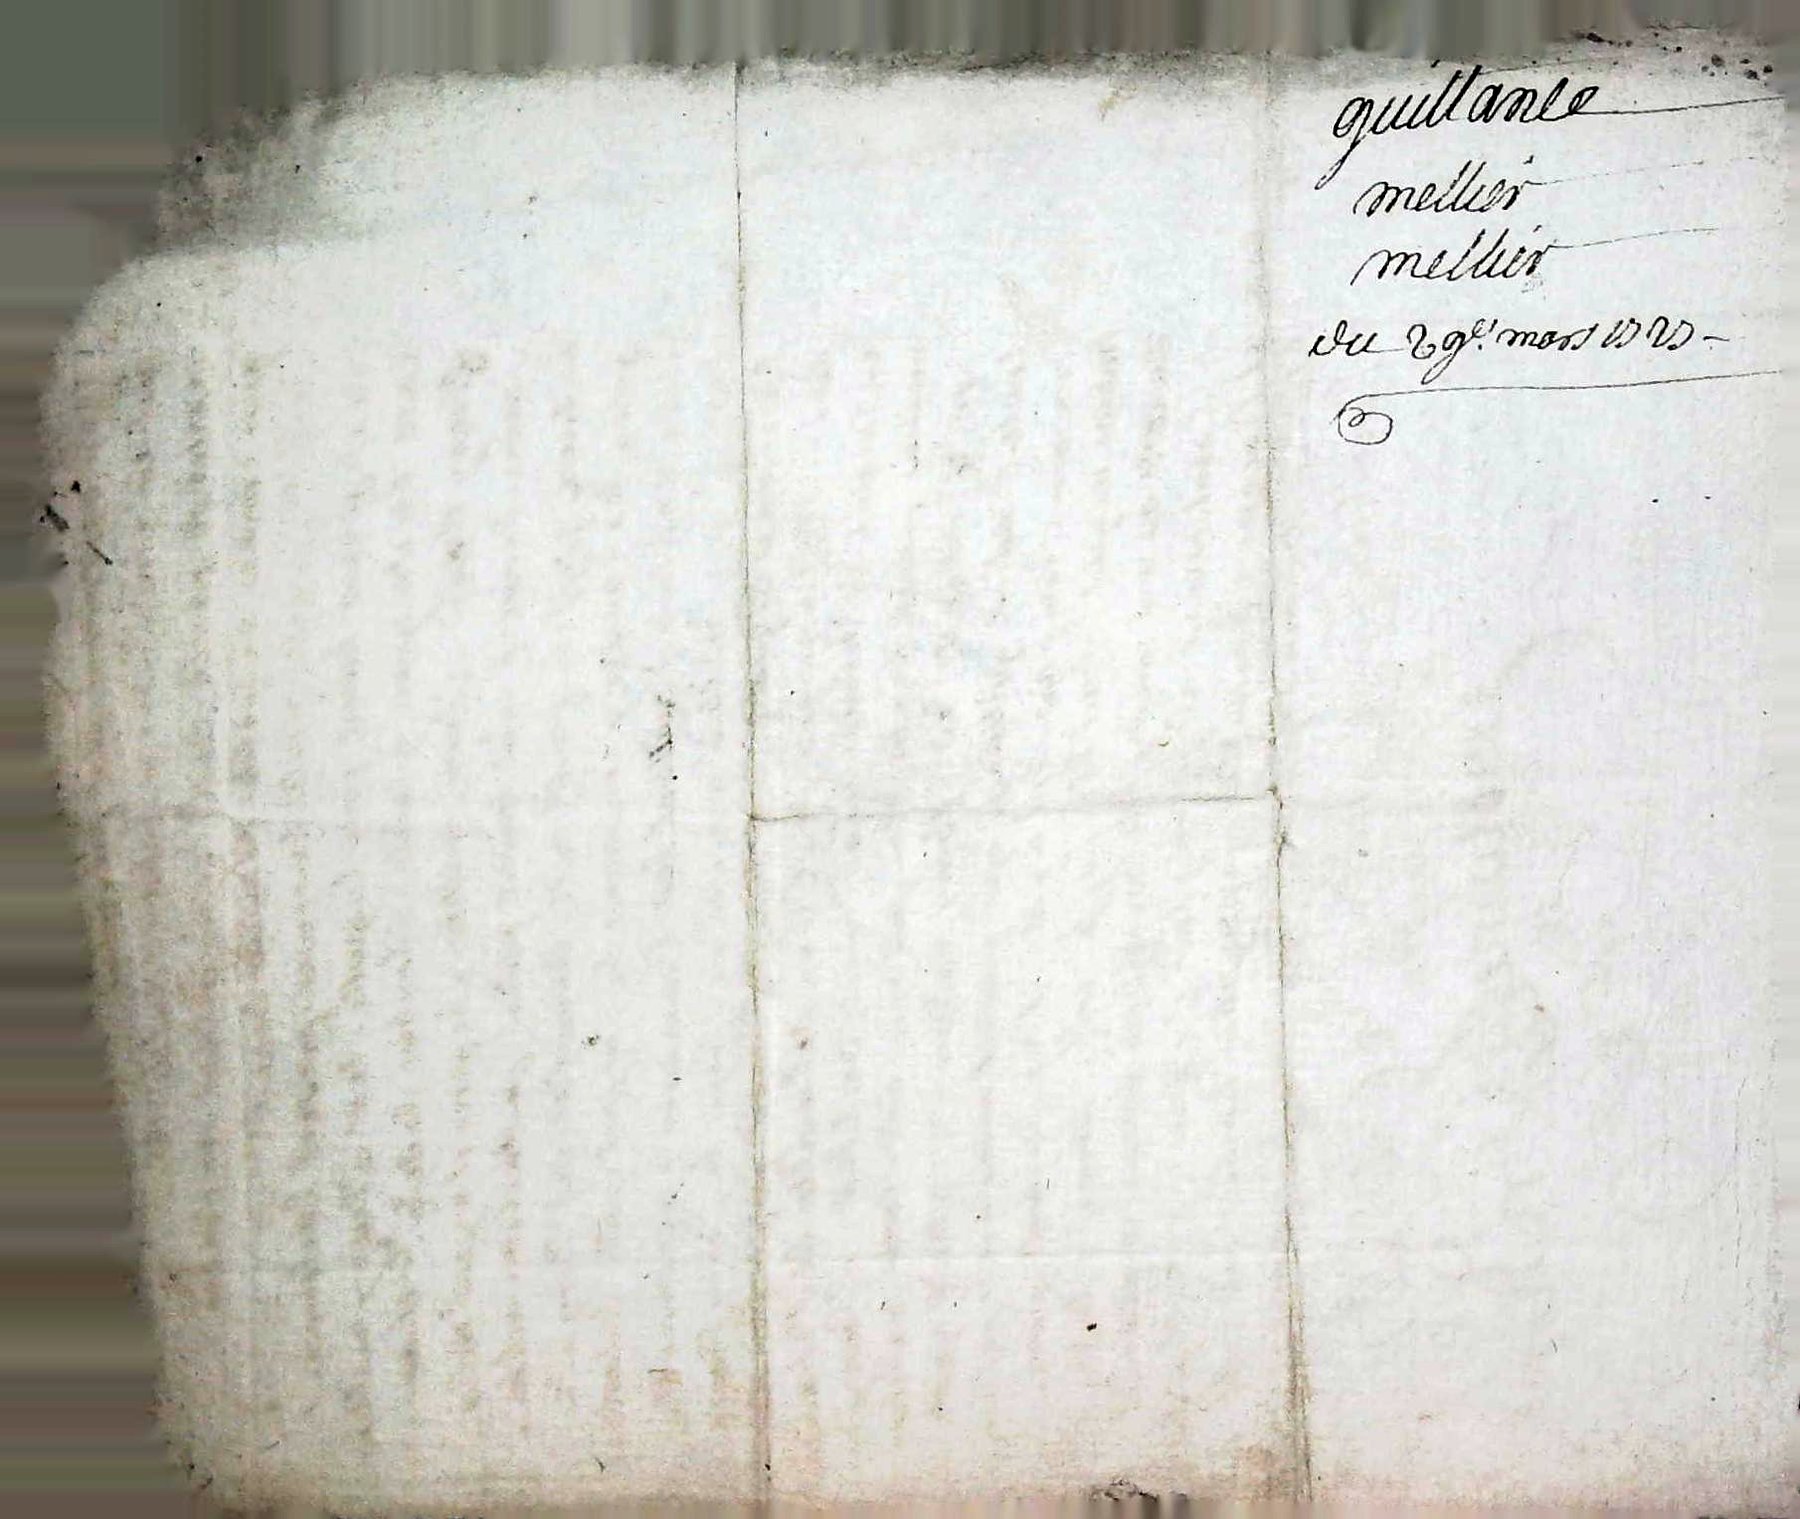 quittance
mellier
mellier
du 29e. mars